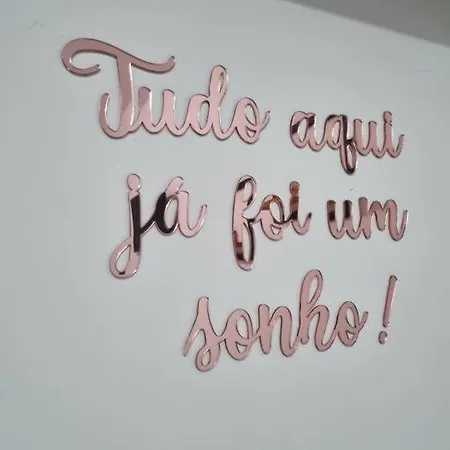 Tudo aqui
já foi um
sonho!